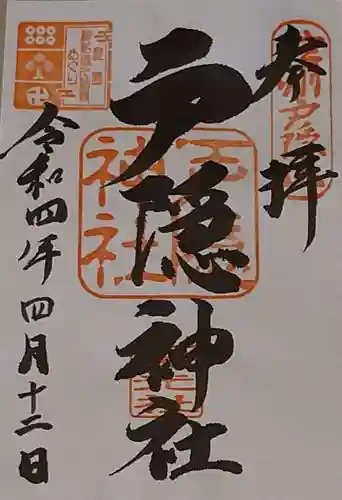 参拝
戸隠神社
令和四年四月十二日
戸隠
神社